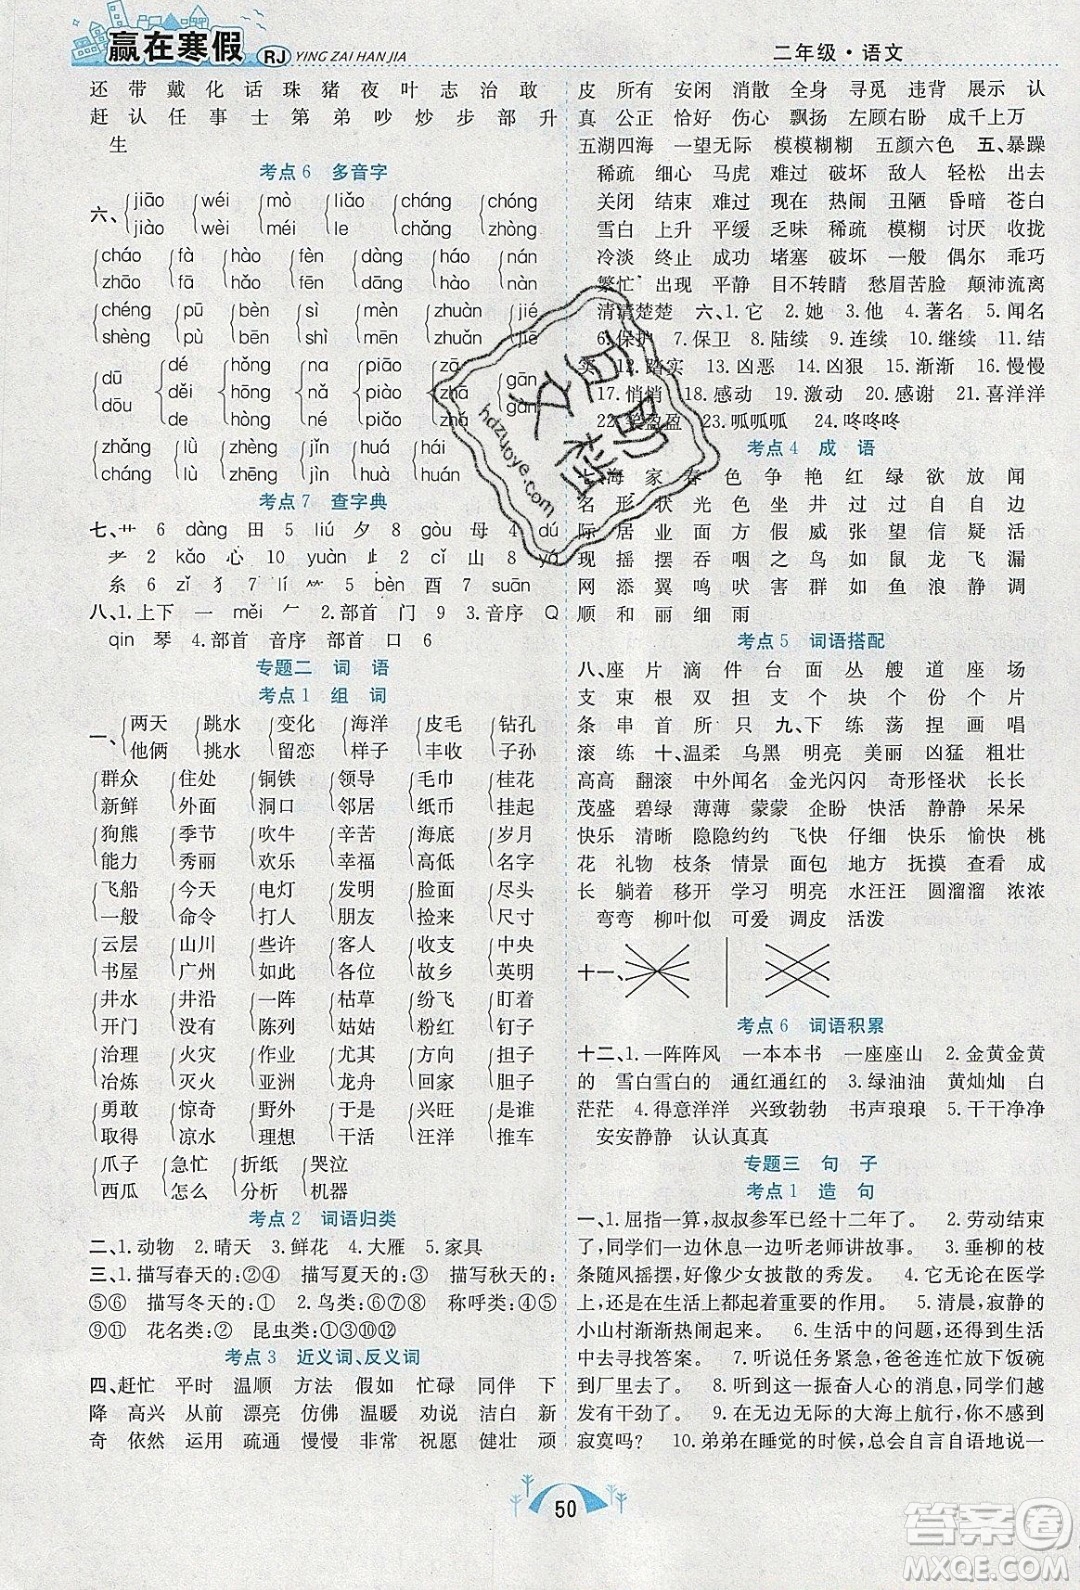 赢在寒假 RJ YING ZAI HAN JIA
二年级·语文
还 带 戴 化 话 珠 猪 夜 叶 志 治 敢
赶 认 任 事 士 第 弟 吵 炒 步 部 升
生
考点6 多音字
六、jiāo wéi mò liǎo cháng chóng
jiào wèi méi le zhǎng zhòng
cháo fà hào fēn dàng hào nán
zhāo fā háo fèn dāng háo nàn
chéng pū bēn shí mèn zhuàn jié
shèng pù bèn shì mēn zhuǎn jiē
dū dé hōng na piāo zā gān
dōu děi hǒng nǎ piǎo zhā gàn
de
zhǎng lù zhèng jīn huá hái
cháng lǜ zhēng jìn huá huán
考点7 查字典
七、艹 6 dàng 田 5 liú 夕 8 gòu 母 4 dú
耂 2 kǎo 心 10 yuàn 止 2 cǐ 山 8 yá
糸 6 zǐ 犭 7 lí ⺮ 5 bèn 酉 7 suān
八、1.上下 一 měi 𠂉 2.部首 门 9 3.音序 Q
qin 琴 4.部首 音序 部首 口 6
专题二 词 语
考点1 组 词
一、两天 跳水 变化 海洋 皮毛 钻孔
他俩 桃树 留恋 样子 丰收 子孙
群众 住处 铜铁 领导 毛巾 桂花
新鲜 外面 洞口 邻居 纸币 挂起
狗熊 季节 吹牛 辛苦 海底 岁月
能力 秀丽 吃饭 幸福 高低 名字
飞船 今天 电灯 发明 脸面 尽管
一般 命令 打人 朋友 捡来 尺寸
云层 山川 些许 客人 收支 中央
书屋 广州 如此 各位 故乡 英明
井水 井沿 一阵 枯草 纷飞 盯着
开门 没有 陈列 姑姑 粉红 钉子
治理 火灾 作业 玉石 回答 担子
冶炼 灭火 亚洲 龙舟 回家 但是
勇敢 惊奇 彩带 于是 兴旺 谁人
取得 凉水 理想 干活 汪洋 推车
爪子 急忙 折纸 哭泣
西瓜 怎么 分析 机器
考点2 词语归类
二、1.动物 2.晴天 3.鲜花 4.大雁 5.家具
三、1.描写春天的:②④ 描写夏天的:③ 描写秋天的:
⑤⑥ 描写冬天的:① 2.鸟类:⑥⑦⑧ 称呼类:④⑤
⑨⑪ 花名类:② 昆虫类:①③⑩
考点3 近义词、反义词
四、赶忙 平时 温顺 方法 假如 忙碌 同伴 下
降 高兴 从前 漂亮 仿佛 温暖 劝说 洁白 新
奇 依然 运用 疏通 慢慢 非常 祝愿 健壮 顽
皮 所有 安闲 消散 全身 寻觅 违背 展示 认
真 公正 恰好 仿佛 飘扬 左顾右盼 成千上万
五湖四海 一望无际 模模糊糊 五颜六色 五、暴躁
稀疏 细心 马虎 难过 破坏 敌人 轻松 出去
关闭 结束 难过 现在 热闹 丑陋 昏暗 苍白
雪白 上升 平缓 乏味 稀疏 模糊 讨厌 收拢
冷淡 终止 成功 堵塞 破坏 一般 偶尔 乖巧
繁忙 出现 平静 目不转睛 愁眉苦脸 颠沛流离
清清楚楚 六、1.它 2.她 3.他 4.著名 5.闻名
6.保护 7.保卫 8.陆续 9.连续 10.继续 11.结
实 12.踏实 13.凶恶 14.凶狠 15.渐渐 16.慢慢
17.悄悄 18.感动 19.激动 20.感谢 21.喜洋洋
22.笑盈盈 23.呱呱呱 24.咚咚咚
考点4 成 语
七、海 家 春 色 争 艳 红 绿 欲 放 闻
名 形 状 光 色 坐 井 过 过 自 自 边
际 居 业 面 方 假 威 张 望 信 疑 活
现 摇 摆 吞 咽 之 鸟 如 鼠 龙 飞 漏
网 添 翼 鸣 吠 害 群 如 鱼 泉 静 调
顺 和 丽 细 雨
考点5 词语搭配
八、座 片 滴 件 台 面 丛 艘 道 座 场
支 束 根 双 担 支 个 块 个 份 个 片
条 串 首 所 只 九、下 练 荡 捏 画 唱
滚 练 十、温柔 乌黑 明亮 美丽 凶猛 粗壮
高高 翻滚 中外闻名 金光闪闪 奇形怪状 长长
茂盛 碧绿 薄薄 蒙蒙 企盼 快活 静静 呆呆
快乐 清晰 隐隐约约 飞快 仔细 快乐 愉快 桃
花 礼物 枝条 情景 面包 地方 抚摸 查看 成
长 躺着 移开 学习 明亮 水汪汪 圆溜溜 浓浓
弯弯 柳叶似 可爱 调皮 活泼
十一、
考点6 词语积累
十二、1.一阵阵风 一本本书 一座座山 2.金黄金黄
的 雪白雪白的 通红通红的 3.绿油油 黄灿灿 白
茫茫 4.得意洋洋 兴致勃勃 书声琅琅 5.干干净净
安安静静 认认真真
专题三 句 子
考点1 造 句
一、1.屈指一算,叔叔参军已经十二年了。 2.劳动结束
了,我们一边休息一边听老师讲故事。 3.垂柳的枝
条随风摇摆,好像少女披散的秀发。 4.它无论在医学
上还是在生活上都起着重要的作用。 5.清晨,寂静的
小山村渐渐热闹起来。 6.生活中的问题,可以到生活
中去寻找答案。 7.听说任务紧急,爸爸连忙放下饭碗
到厂里去了。 8.听到这一振奋人心的消息,同学们更
加有干劲了。 9.在无边无际的大海上航行,你不感到
寂寞吗? 10.弟弟在睡觉的时候,总会自言自语地说一
50
百印
文档
hdzuoye.com
答案圈
MXQE.COM